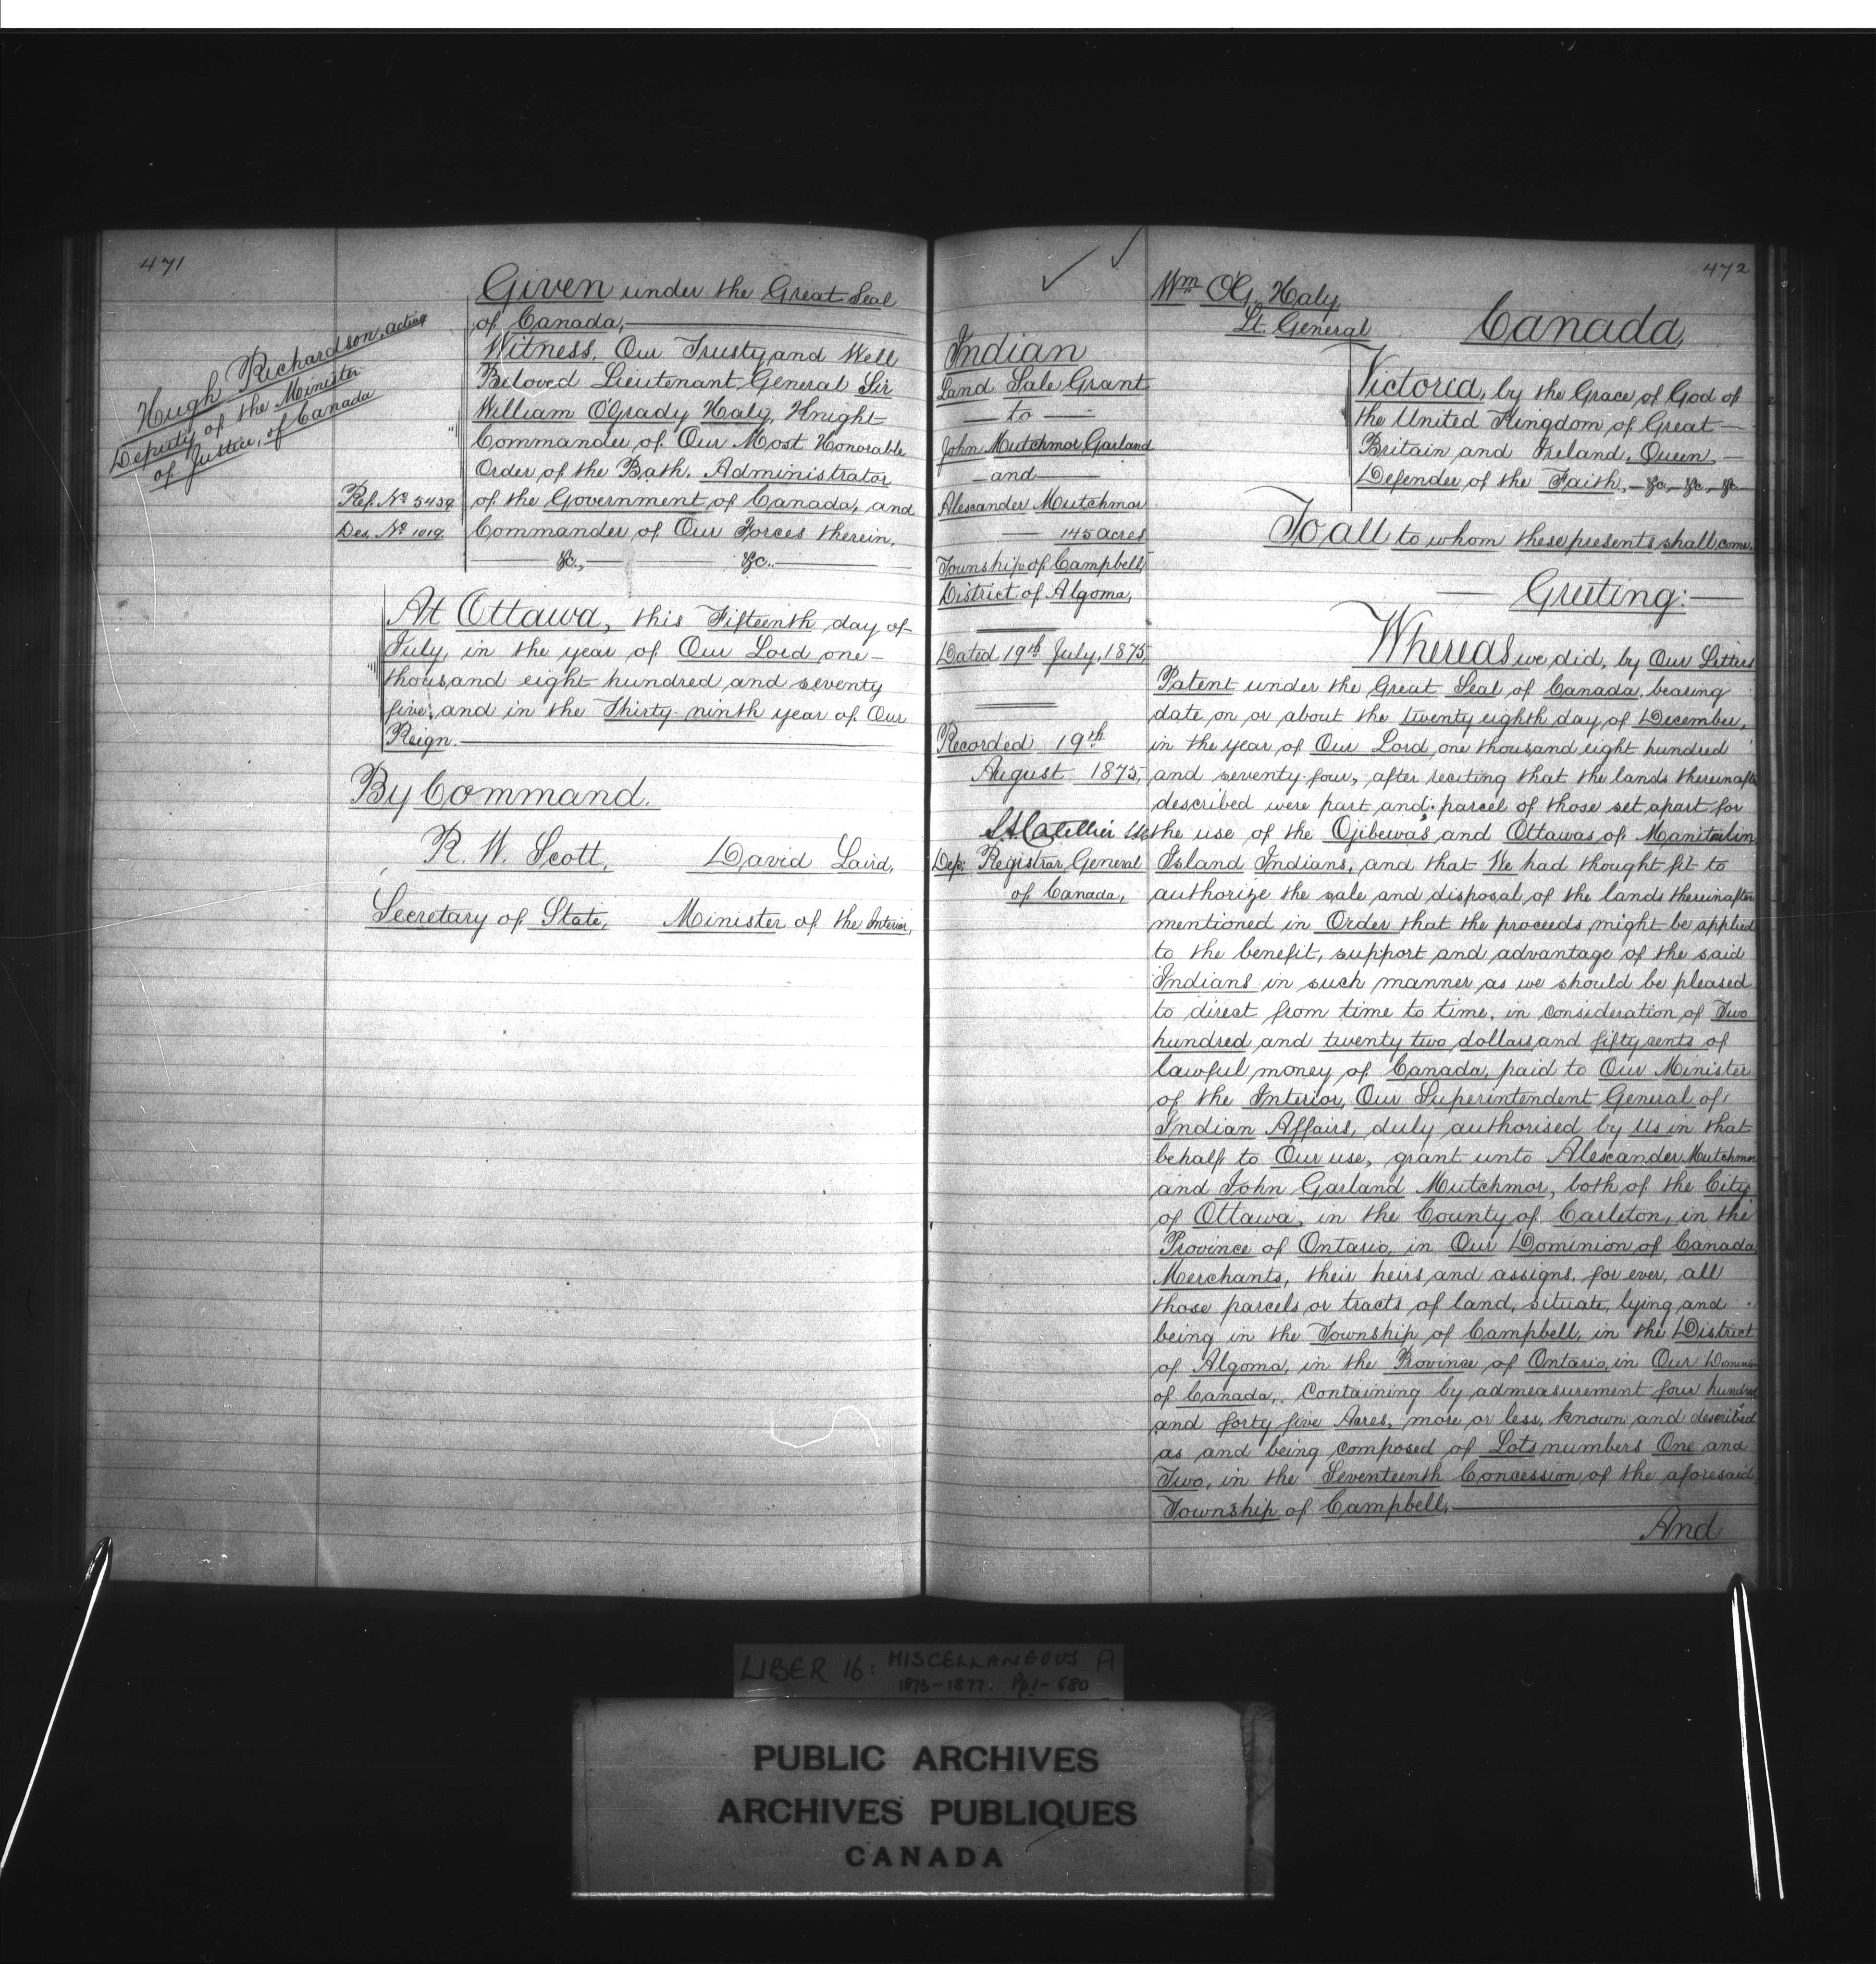 471
Given under the Great Seal
of Canada,
Witness, Our Trusty and Well
Beloved Lieutenant General Sir
William O'Grady Haly, Knight
Commander of Our Most Honorable
Order of the Bath, Administrator
of the Government of Canada, and
Commander of Our Forces therein,
&c., &c.
Hugh Richardson, acting
Deputy of the Minister
of Justice, of Canada
Ref. No 5439
Des. No 1019.
At Ottawa, this Fifteenth day of
July, in the year of Our Lord one
thousand eight hundred and seventy
five, and in the Thirty ninth year of Our
Reign.
By Command.
R. W. Scott, David Laird,
Secretary of State, Minister of the Interior,
472
Indian
Land Sale Grant
to
John Mutchmor Garland
and
Alexander Mutchmor
145 acres
Township of Campbell,
District of Algoma,
Dated 19th July, 1875,
Recorded 19th
August 1875,
Dep. Registrar General
of Canada,
Wm O'G. Haly
Lt. General
Canada,
Victoria, by the Grace of God of
the United Kingdom of Great
Britain and Ireland, Queen,
Defender of the Faith, &c, &c, &c
To all to whom these presents shall come,
Greeting:
Whereas we did, by Our Letters
Patent under the Great Seal of Canada, bearing
date on or about the twenty eighth day of December,
in the year of Our Lord, one thousand eight hundred
and seventy four, after reciting that the lands thereinafter
described were part and parcel of those set apart for
the use of the Ojibewas and Ottawas of Manitoulin
Island Indians, and that We had thought fit to
authorize the sale and disposal of the lands thereinafter
mentioned in Order that the proceeds might be applied
to the benefit, support and advantage of the said
Indians in such manner as we should be pleased
to direct from time to time, in consideration of Two
hundred and twenty two dollars and fifty cents of
lawful money of Canada, paid to Our Minister
of the Interior, Our Superintendent General of
Indian Affairs, duly authorised by Us in that
behalf to Our use, grant unto Alexander Mutchmor
and John Garland Mutchmor, both of the City
of Ottawa, in the County of Carleton, in the
Province of Ontario, in Our Dominion of Canada,
Merchants, their heirs and assigns, for ever, all
those parcels or tracts of land, situate, lying and
being in the Township of Campbell, in the District
of Algoma, in the Province of Ontario, in Our Dominion
of Canada, Containing by admeasurement four hundred
and forty five Acres, more or less, known and described
as and being composed of Lots numbers One and
Two, in the Seventeenth Concession of the aforesaid
Township of Campbell.
And
LIBER 16: MISCELLANEOUS A
1873-1877. Pp1-680
PUBLIC ARCHIVES
ARCHIVES PUBLIQUES
CANADA